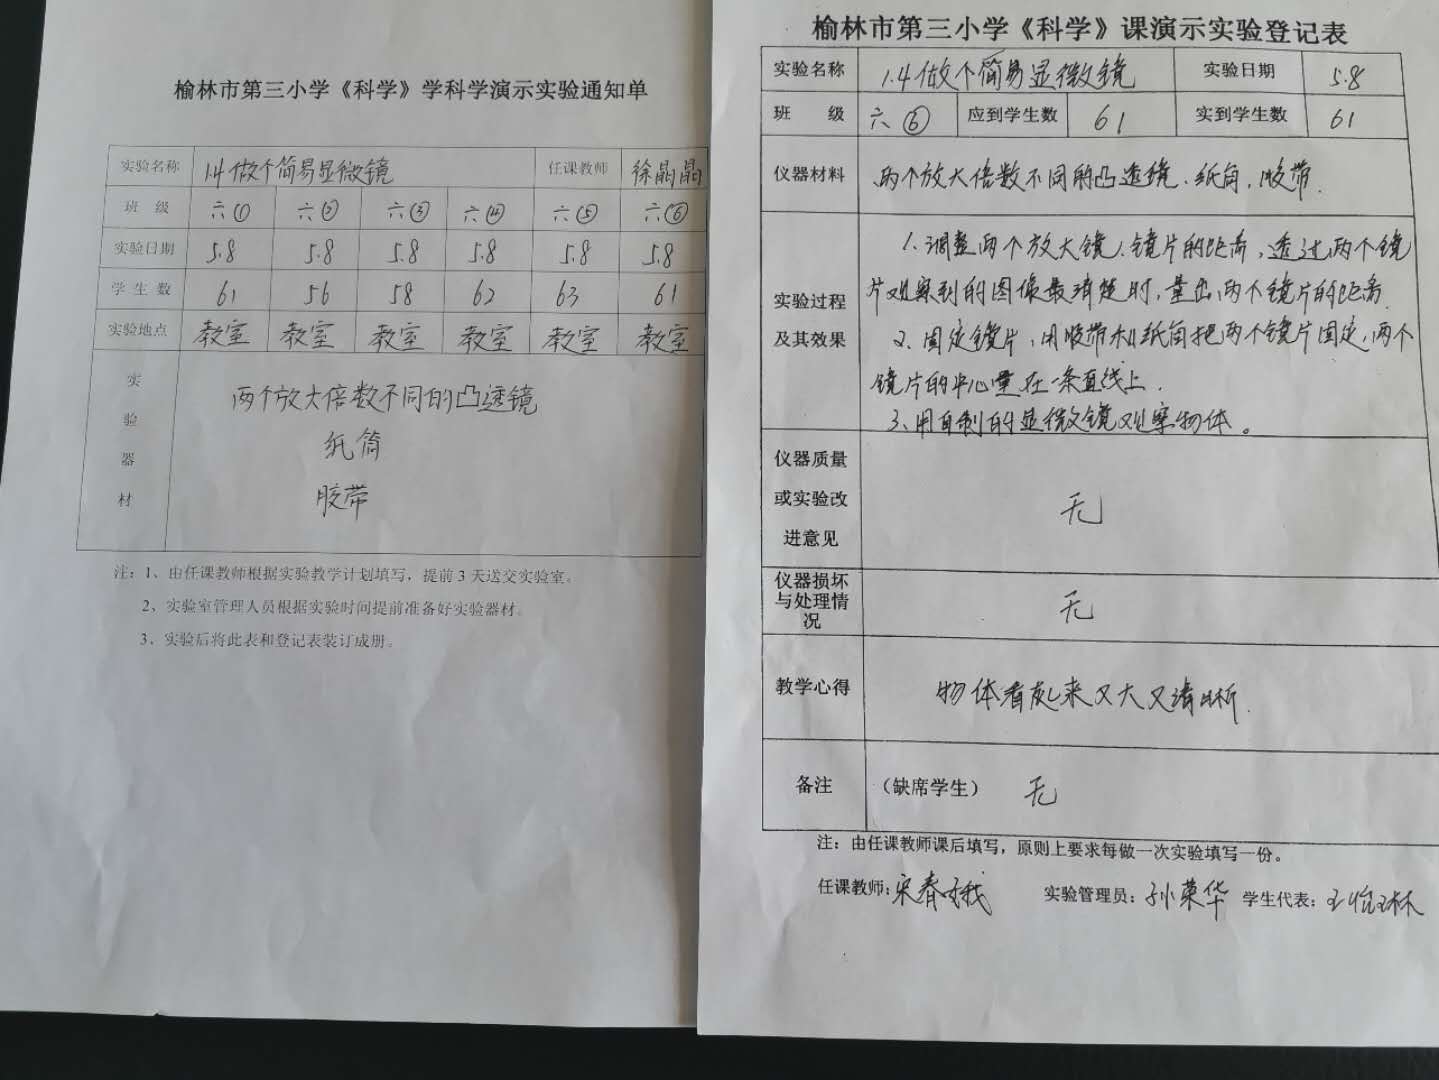 榆林市第三小学《科学》学科学演示实验通知单
实验名称 1.4做个简易显微镜 任课教师 徐晶晶
班 级 六① 六② 六③ 六④ 六⑤ 六⑥
实验日期 5.8 5.8 5.8 5.8 5.8 5.8
学 生 数 61 56 58 62 63 61
实验地点 教室 教室 教室 教室 教室 教室
实验器材
两个放大倍数不同的凸透镜
纸筒
胶带
注：1、由任课教师根据实验教学计划填写，提前3天送交实验室。
2、实验室管理人员根据实验时间提前准备好实验器材。
3、实验后将此表和登记表装订成册。
榆林市第三小学《科学》课演示实验登记表
实验名称 1.4做个简易显微镜 实验日期 5.8
班 级 六⑥ 应到学生数 61 实到学生数 61
仪器材料 两个放大倍数不同的凸透镜、纸筒，胶带.
实验过程及其效果
1.调整两个放大镜、镜片的距离，透过两个镜
片观察到的图像最清楚时，量出两个镜片的距离.
2、固定镜片，用胶带和纸筒把两个镜片固定，两个
镜片的中心要在一条直线上.
3、用自制的显微镜观察物体。
仪器质量或实验改进意见 无
仪器损坏与处理情况 无
教学心得 物体看起来又大又清晰.
备注 （缺席学生） 无
注：由任课教师课后填写，原则上要求每做一次实验填写一份。
任课教师：宋春娥 实验管理员：孙荣华 学生代表：王怡琳